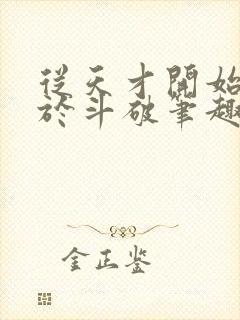 從天才開始
於斗破筆趣
金正鉴